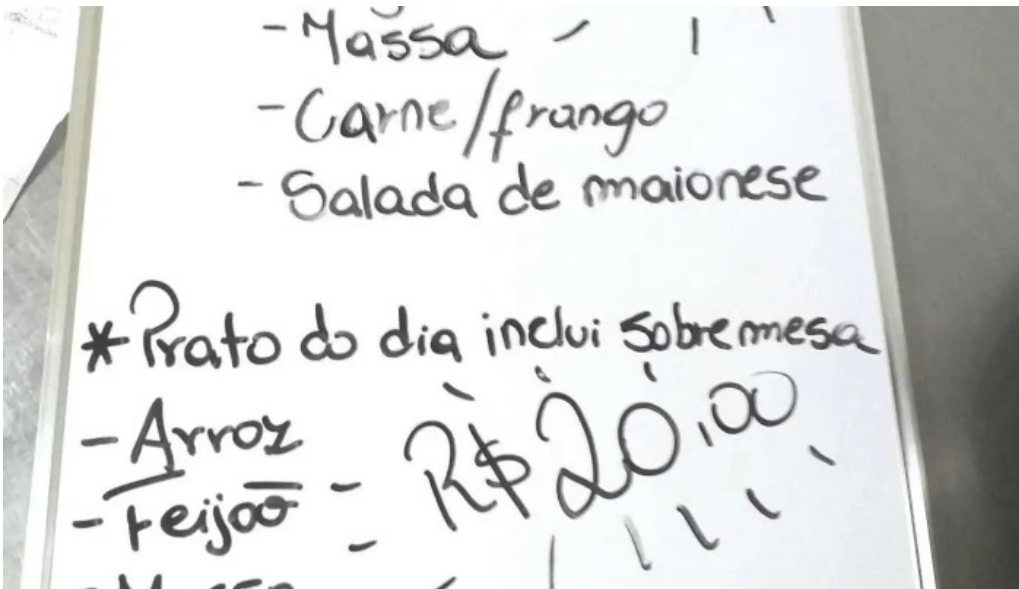 - Massa
- Carne/frango
- Salada de maionese
* Prato do dia inclui sobremesa
- Arroz
- Feijão
R$ 20,00
- Massa